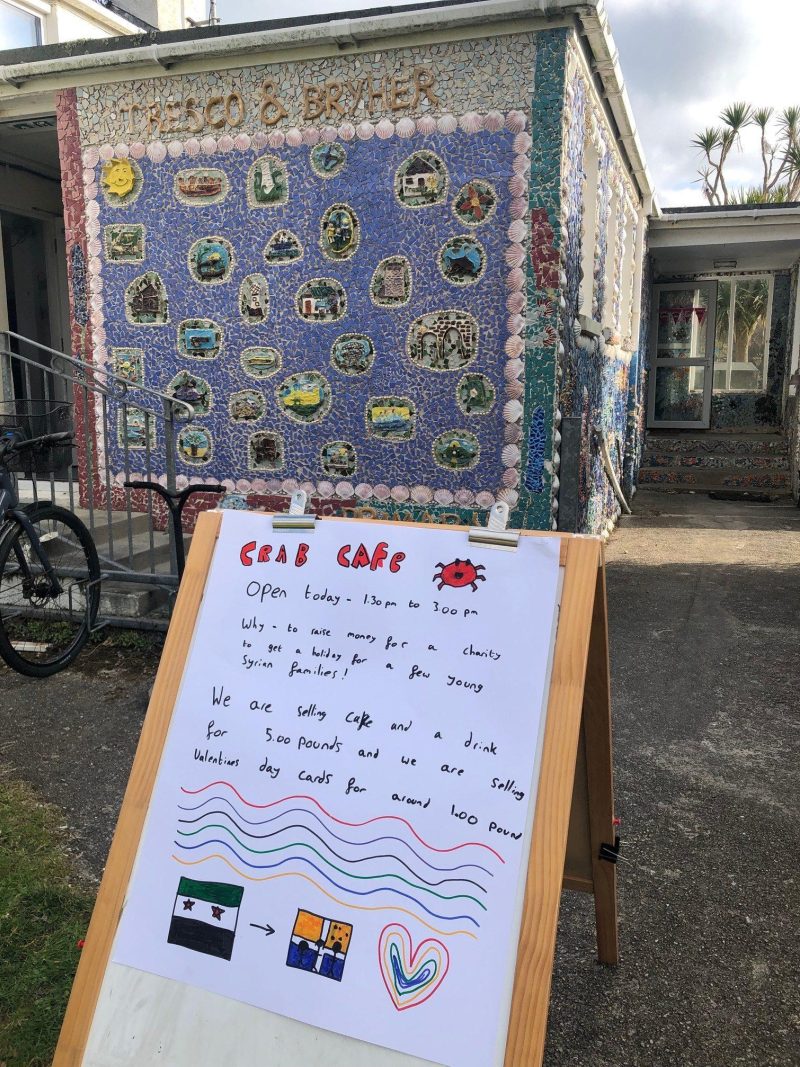 TRESCO & BRYHER
CRAB CAFE
Open today - 1.30 pm to 3.00 pm
Why - to raise money for a charity
to get a holiday for a few young
Syrian families!
We are selling cake and a drink
for 5.00 pounds and we are selling
Valentines day cards for around 1.00 pound